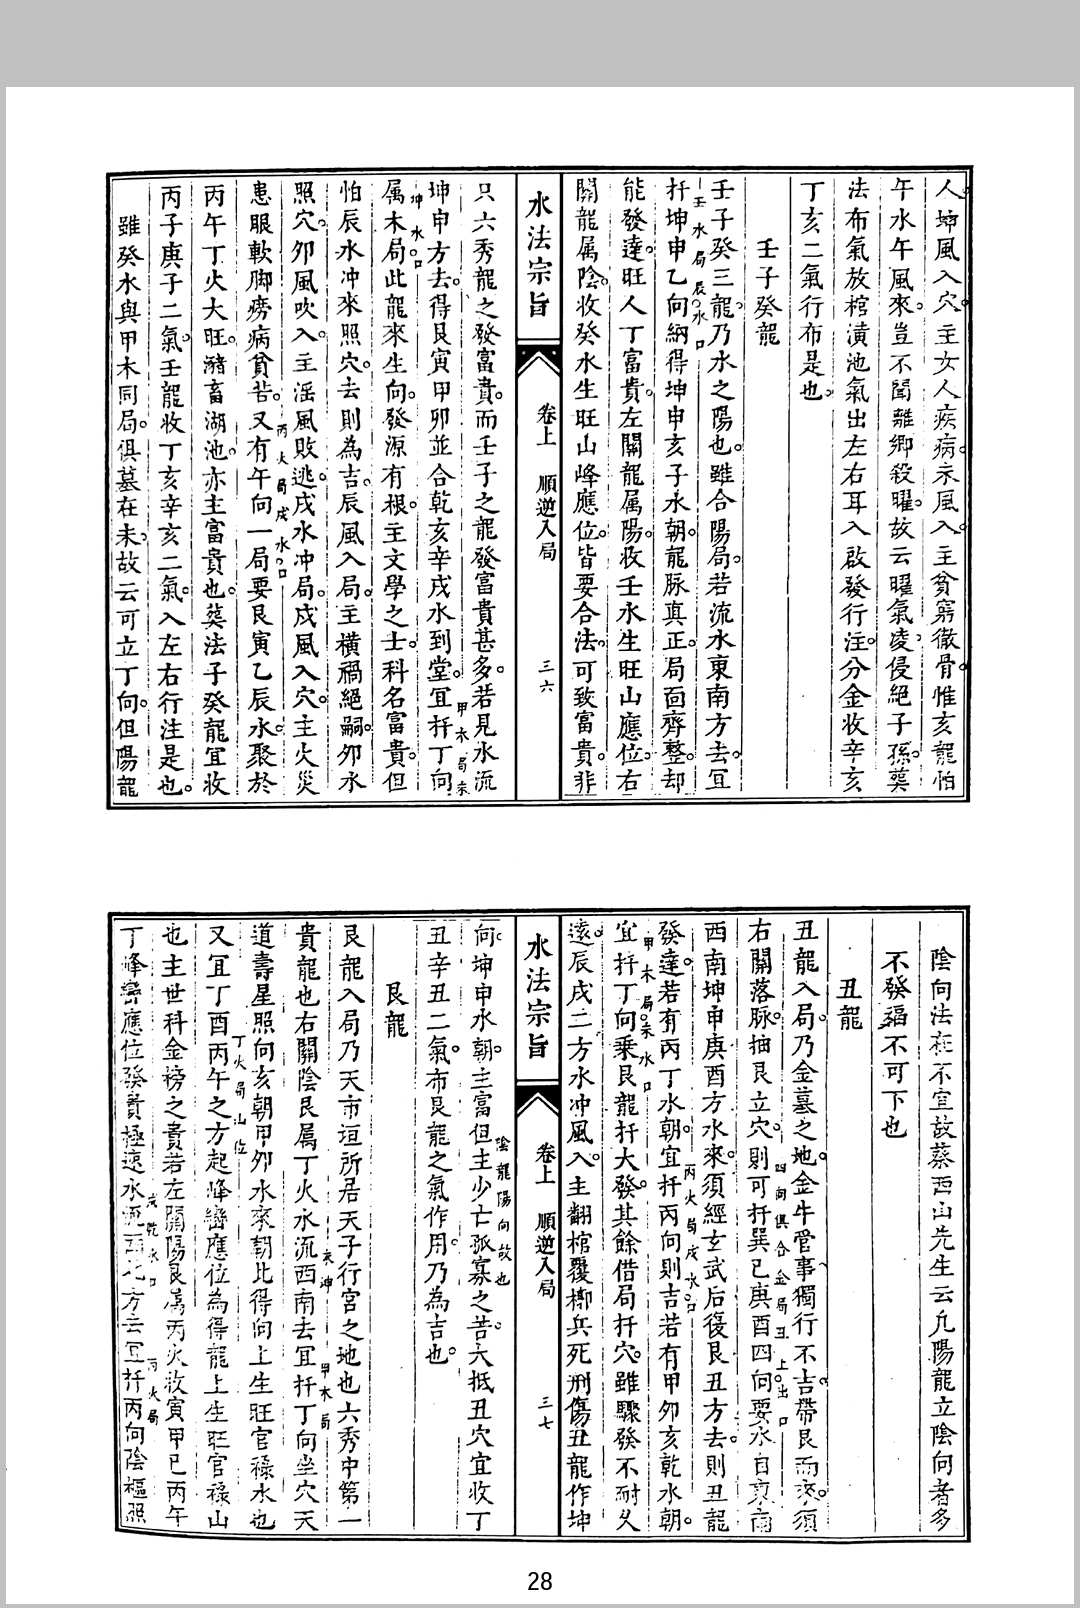 人坤風入穴主女人疾病未風入主貧窮徹骨惟亥龍怕
午水午風來豈不聞離鄉殺曜故云曜氣凌侵絕子孫葬
法布氣放棺潢池氣出左右耳入啟發行注分金收辛亥
丁亥二氣行布是也
壬子癸龍
壬子癸三龍乃水之陽也雖合陽局若流水東南方去宜
壬水局辰水口
扦坤申乙向納得坤申亥子水朝龍脉真正局面齊整却
能發達旺人丁富貴左關龍属陽收壬水生旺山應位右
關龍属陰收癸水生旺山峰應位皆要合法可致富貴非
水法宗旨
卷上 順逆入局
三六
只六秀龍之發富貴而壬子之龍發富貴甚多若見水流
甲木局未
坤申方去得艮寅甲卯並合乾亥辛戌水到堂宜扦丁向
坤水口
属木局此龍來生向發源有根主文學之士科名富貴但
怕辰水冲來照穴去則為吉辰風入局主橫禍絕嗣卯水
照穴卯風吹入主滛風敗逃戌水冲局戍風入穴主火災
丙火局戌水口
患眼軟脚癆病貧苦又有午向一局要艮寅乙辰水聚於
丙午丁火大旺瀦畜湖池亦主富貴也葬法子癸龍宜收
丙子庚子二氣壬龍收丁亥辛亥二氣入左右行注是也
雖癸水與甲木同局俱墓在未故云可立丁向但陽龍
陰向法在不宜故蔡西山先生云凡陽龍立陰向者多
不發福不可下也
丑龍
丑龍入局乃金墓之地金牛管事獨行不吉帶艮而來須
四向俱合金局丑上出口
右關落脉抽艮立穴則可扦巽巳庚酉四向要水自東南
西南坤申庚酉方水來須經玄武后復艮丑方去則丑龍
丙火局戌水口
發達若有丙丁水朝宜扦丙向則吉若有甲卯亥乾水朝
甲木局未水口
宜扦丁向乗艮龍扦大發其餘借局扦穴雖驟發不耐乆
遠辰戌二方水冲風入主翻棺覆槨兵死刑傷丑龍作坤
水法宗旨
卷上 順逆入局
三七
陰龍陽向故也
向坤申水朝主富但主少亡孤寡之苦大抵丑穴宜收丁
丑辛丑二氣布艮龍之氣作用乃為吉也
艮龍
艮龍入局乃天市垣所居天子行宮之地也六秀中第一
未坤 甲木局
貴龍也右關陰艮属丁火水流西南去宜扦丁向坐穴天
道壽星照向亥朝甲卯水來朝比得向上生旺官祿水也
丁火局山位
又宜丁酉丙午之方起峰巒應位為得龍上生旺官祿山
也主世科金榜之貴若左關陽艮属丙火收寅甲巳丙午
戌乾水口 丙火局
丁峰巒應位發貴極速水流西北方去宜扦丙向陰樞照
28